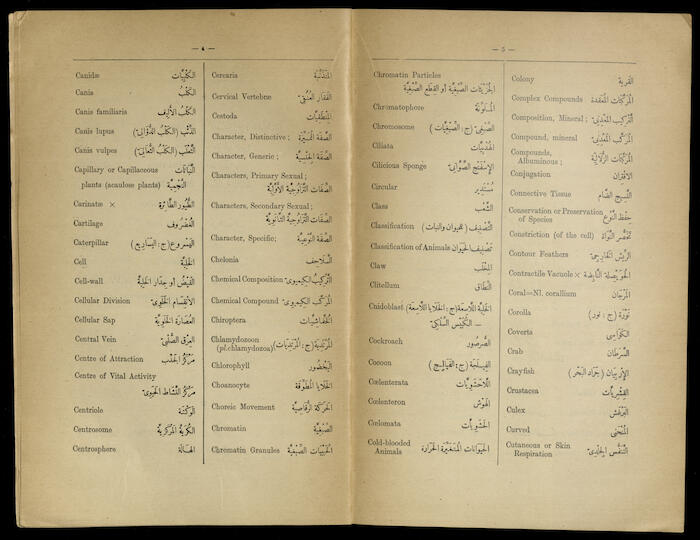 — 4 —
Canidæ الكلبيات
Canis الكلب
Canis familiaris الكلب الأليف
Canis lupus الذئب (الكلب الذؤالي)
Canis vulpes الثعلب (الكلب الثعالي)
Capillary or Capillaceous النباتات
plants (acaulose plants) النجمية
Carinatæ × الطيور الطائرة
Cartilage الغضروف
Caterpillar اليسروع (ج: اليساريع)
Cell الخلية
Cell-wall القيض أو جدار الخلية
Cellular Division الانقسام الخلوي
Cellular Sap العصارة الخلوية
Central Vein العرق الصلبي
Centre of Attraction مركز الجذب
Centre of Vital Activity
مركز النشاط الحيوي
Centriole
Centrosome الكرية المركزية
Centrosphere الهالة
Cercaria المذنبة
Cervical Vertebræ الفقار العنقي
Cestoda
Character, Distinctive; الصفة المميزة
Character, Generic; الصفة الجنسية
Characters, Primary Sexual;
الصفات التزاوجية الأولية
Characters, Secondary Sexual;
الصفات التزاوجية الثانوية
Character, Specific; الصفة النوعية
Chelonia السلاحف
Chemical Composition التركيب الكيميوي
Chemical Compound المركب الكيميوي
Chiroptera الخفاشيات
Chlamydozoon
(pl.chlamydozoa)
Chlorophyll اليخضور
Choanocyte الخلايا المطوقة
Choreic Movement الحركة الرقاصية
Chromatin الصبغية
Chromatin Granules الحبيبات الصبغية
— 5 —
Chromatin Particles
الجزيئات الصبغية أو القطع الصبغية
Chromatophore الملونة
Chromosome الصبغي (ج: الصبغيات)
Ciliata الهدبيات
Cilicious Sponge الإسفنج الصواني
Circular مستدير
Class الشعب
Classification التصنيف (للحيوان والنبات)
Classification of Animals تصنيف الحيوان
Claw المخلب
Clitellum النطاق
Cnidoblast الخلية اللاسعة (ج: الخلايا اللاسعة)
Cockroach الصرصور
Cocoon الفيلجة (ج: الفيالج)
Cœlenterata اللاحشويات
Cœlenteron
Cœlomata الحشويات
Cold-blooded
Animals الحيوانات المتغيرة الحرارة
Colony القرية
Complex Compounds المركبات المعقدة
Composition, Mineral; التركيب المعدني
Compound, mineral المركب المعدني
Compounds,
Albuminous; المركبات الزلالية
Conjugation الاقتران
Connective Tissue النسيج الضام
Conservation or Preservation
of Species حفظ النوع
Constriction (of the cell) تخصر النواة
Contour Feathers الريش الخارجي
Contractile Vacuole × الحويصلة النابضة
Coral=Nl. corallium المرجان
Corolla
Coverts
Crab السرطان
Crayfish الإربيان (جراد البحر)
Crustacea القشريات
Culex البرغش
Curved المنحني
Cutaneous or Skin
Respiration التنفس الجلدي